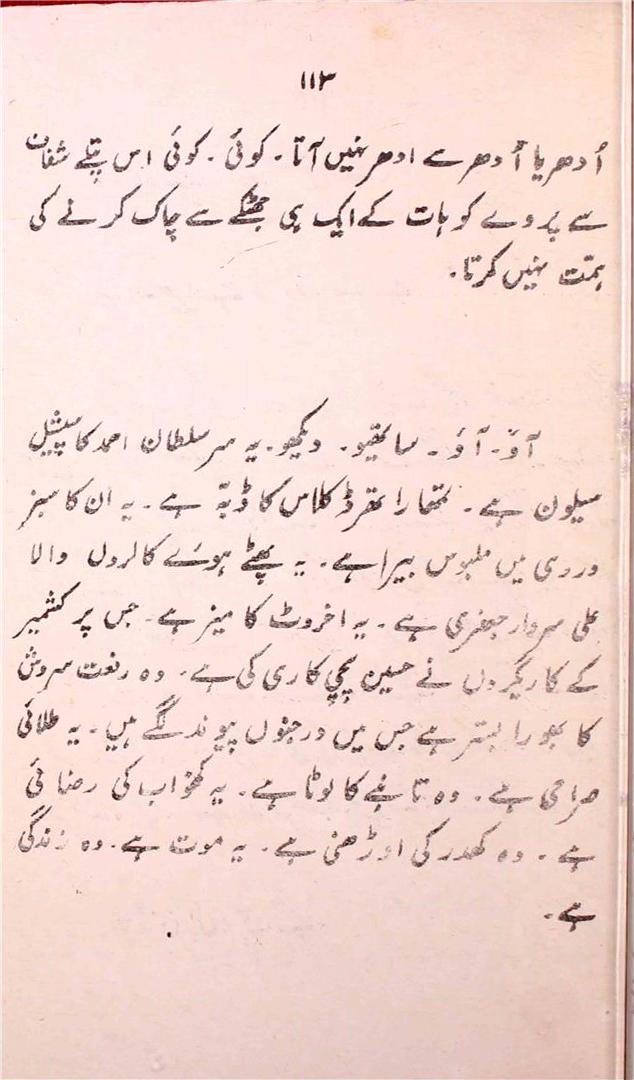 ۱۱۳
اُدھر یا اُدھر سے ادھر نہیں آتا۔ کوئی۔ کوئی اس پتلے شفاف
سے پردے کو ہات کے ایک ہی جھٹکے سے چاک کرنے کی
ہمّت نہیں کرتا۔
آؤ۔ آؤ۔ ساتھیو۔ دیکھو۔ یہ سر سلطان احمد کا سپیشل
سیلون ہے۔ تمھارا تھرڈ کلاس کا ڈبّہ ہے۔ یہ ان کا سبز
وردی میں ملبوس بیرا ہے۔ یہ پھٹے ہوئے کالروں والا
علی سردار جعفری ہے۔ یہ اخروٹ کا میز ہے۔ جس پر کشمیر
کے کاریگروں نے حسین پچی کاری کی ہے۔ وہ رفعت سروش
کا بھورا بستر ہے جس میں درجنوں پیوند لگے ہیں۔ یہ طلائی
صراحی ہے۔ وہ تانبے کا لوٹا ہے۔ یہ کمخواب کی رضائی
ہے۔ وہ کھدر کی اوڑھنی ہے۔ یہ موت ہے۔ وہ زندگی
ہے۔